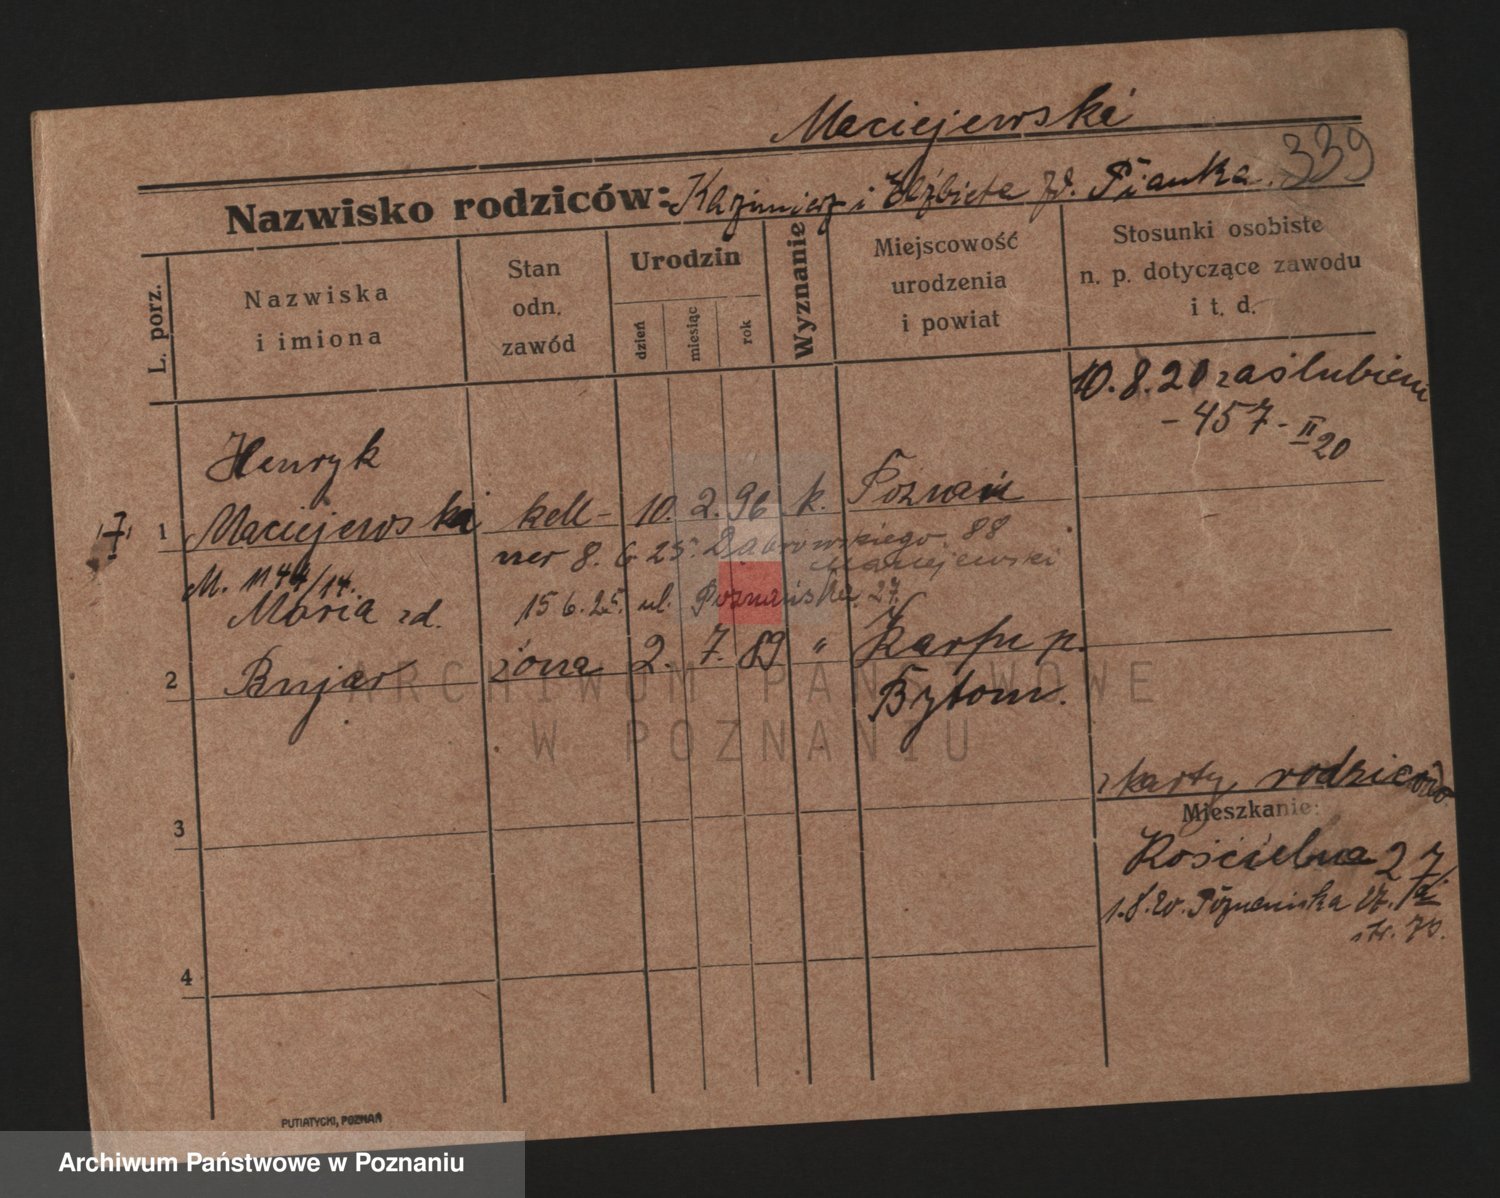 Maciejewski
339
Nazwisko rodziców: Kazimierz i Elżbieta zd. Pianka.
L. porz.
Nazwiska
i imiona
Stan
odn.
zawód
Urodzin
dzień
miesiąc
rok
Wyznanie
Miejscowość
urodzenia
i powiat
Stosunki osobiste
n. p. dotyczące zawodu
i t. d.
10.8.20 zaślubieni
- 457 - II 20
Henryk
1 Maciejewski kell- 10. 2. 96 k. Poznań
ner 8. 6 25. Dąbrowskiego 88
Maciejewski
M. 1144/14.
Maria zd. 15 6. 25. ul. Poznańska 27.
2 Bujar żona 2. 7. 89 " Karf p.
Bytom.
z karty rodziców
Mieszkanie:
3
Kościelna 27
1.8.20. Poznańska 27.
str. 70.
4
PUTIATYCKI, POZNAŃ
ARCHIWUM PAŃSTWOWE
W POZNANIU
Archiwum Państwowe w Poznaniu